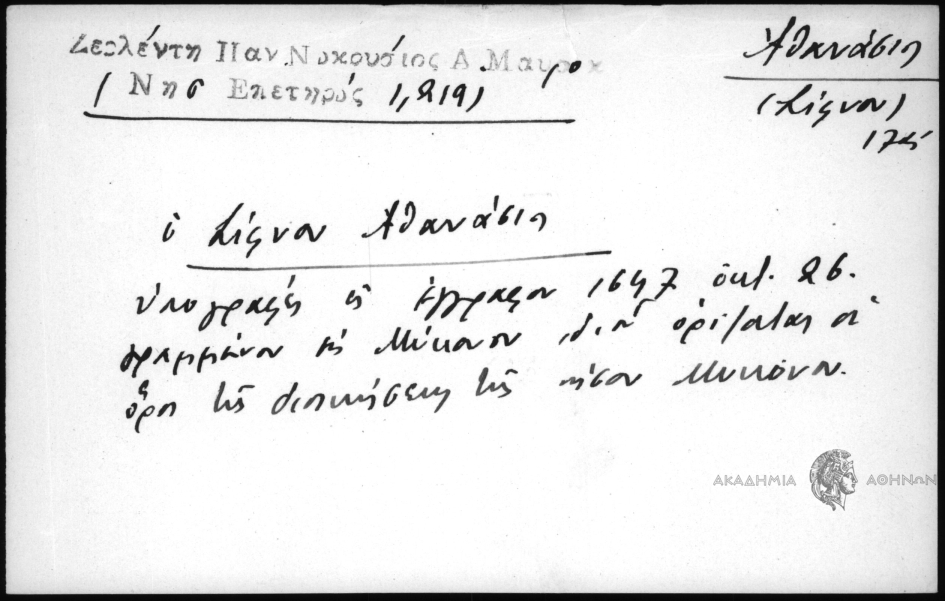 Ζερλέντη Παν. Νικουσίος Α. Μαυροκ
(Νησ Επετηρίς 1, 219)
Ἀθανάσιος
(Σίφνου)
ὁ Σίφνου Ἀθανάσιος
ὑπογραφεὺς εἰς ἔγγραφον 1647 ὀκτ. 26.
γραμμένον εἰς Μύκονον, δι' οὗ ὁρίζονται οἱ
ὅροι τῆς διοικήσεως τῆς νήσου Μυκόνου.
ΑΚΑΔΗΜΙΑ ΑΘΗΝΩΝ